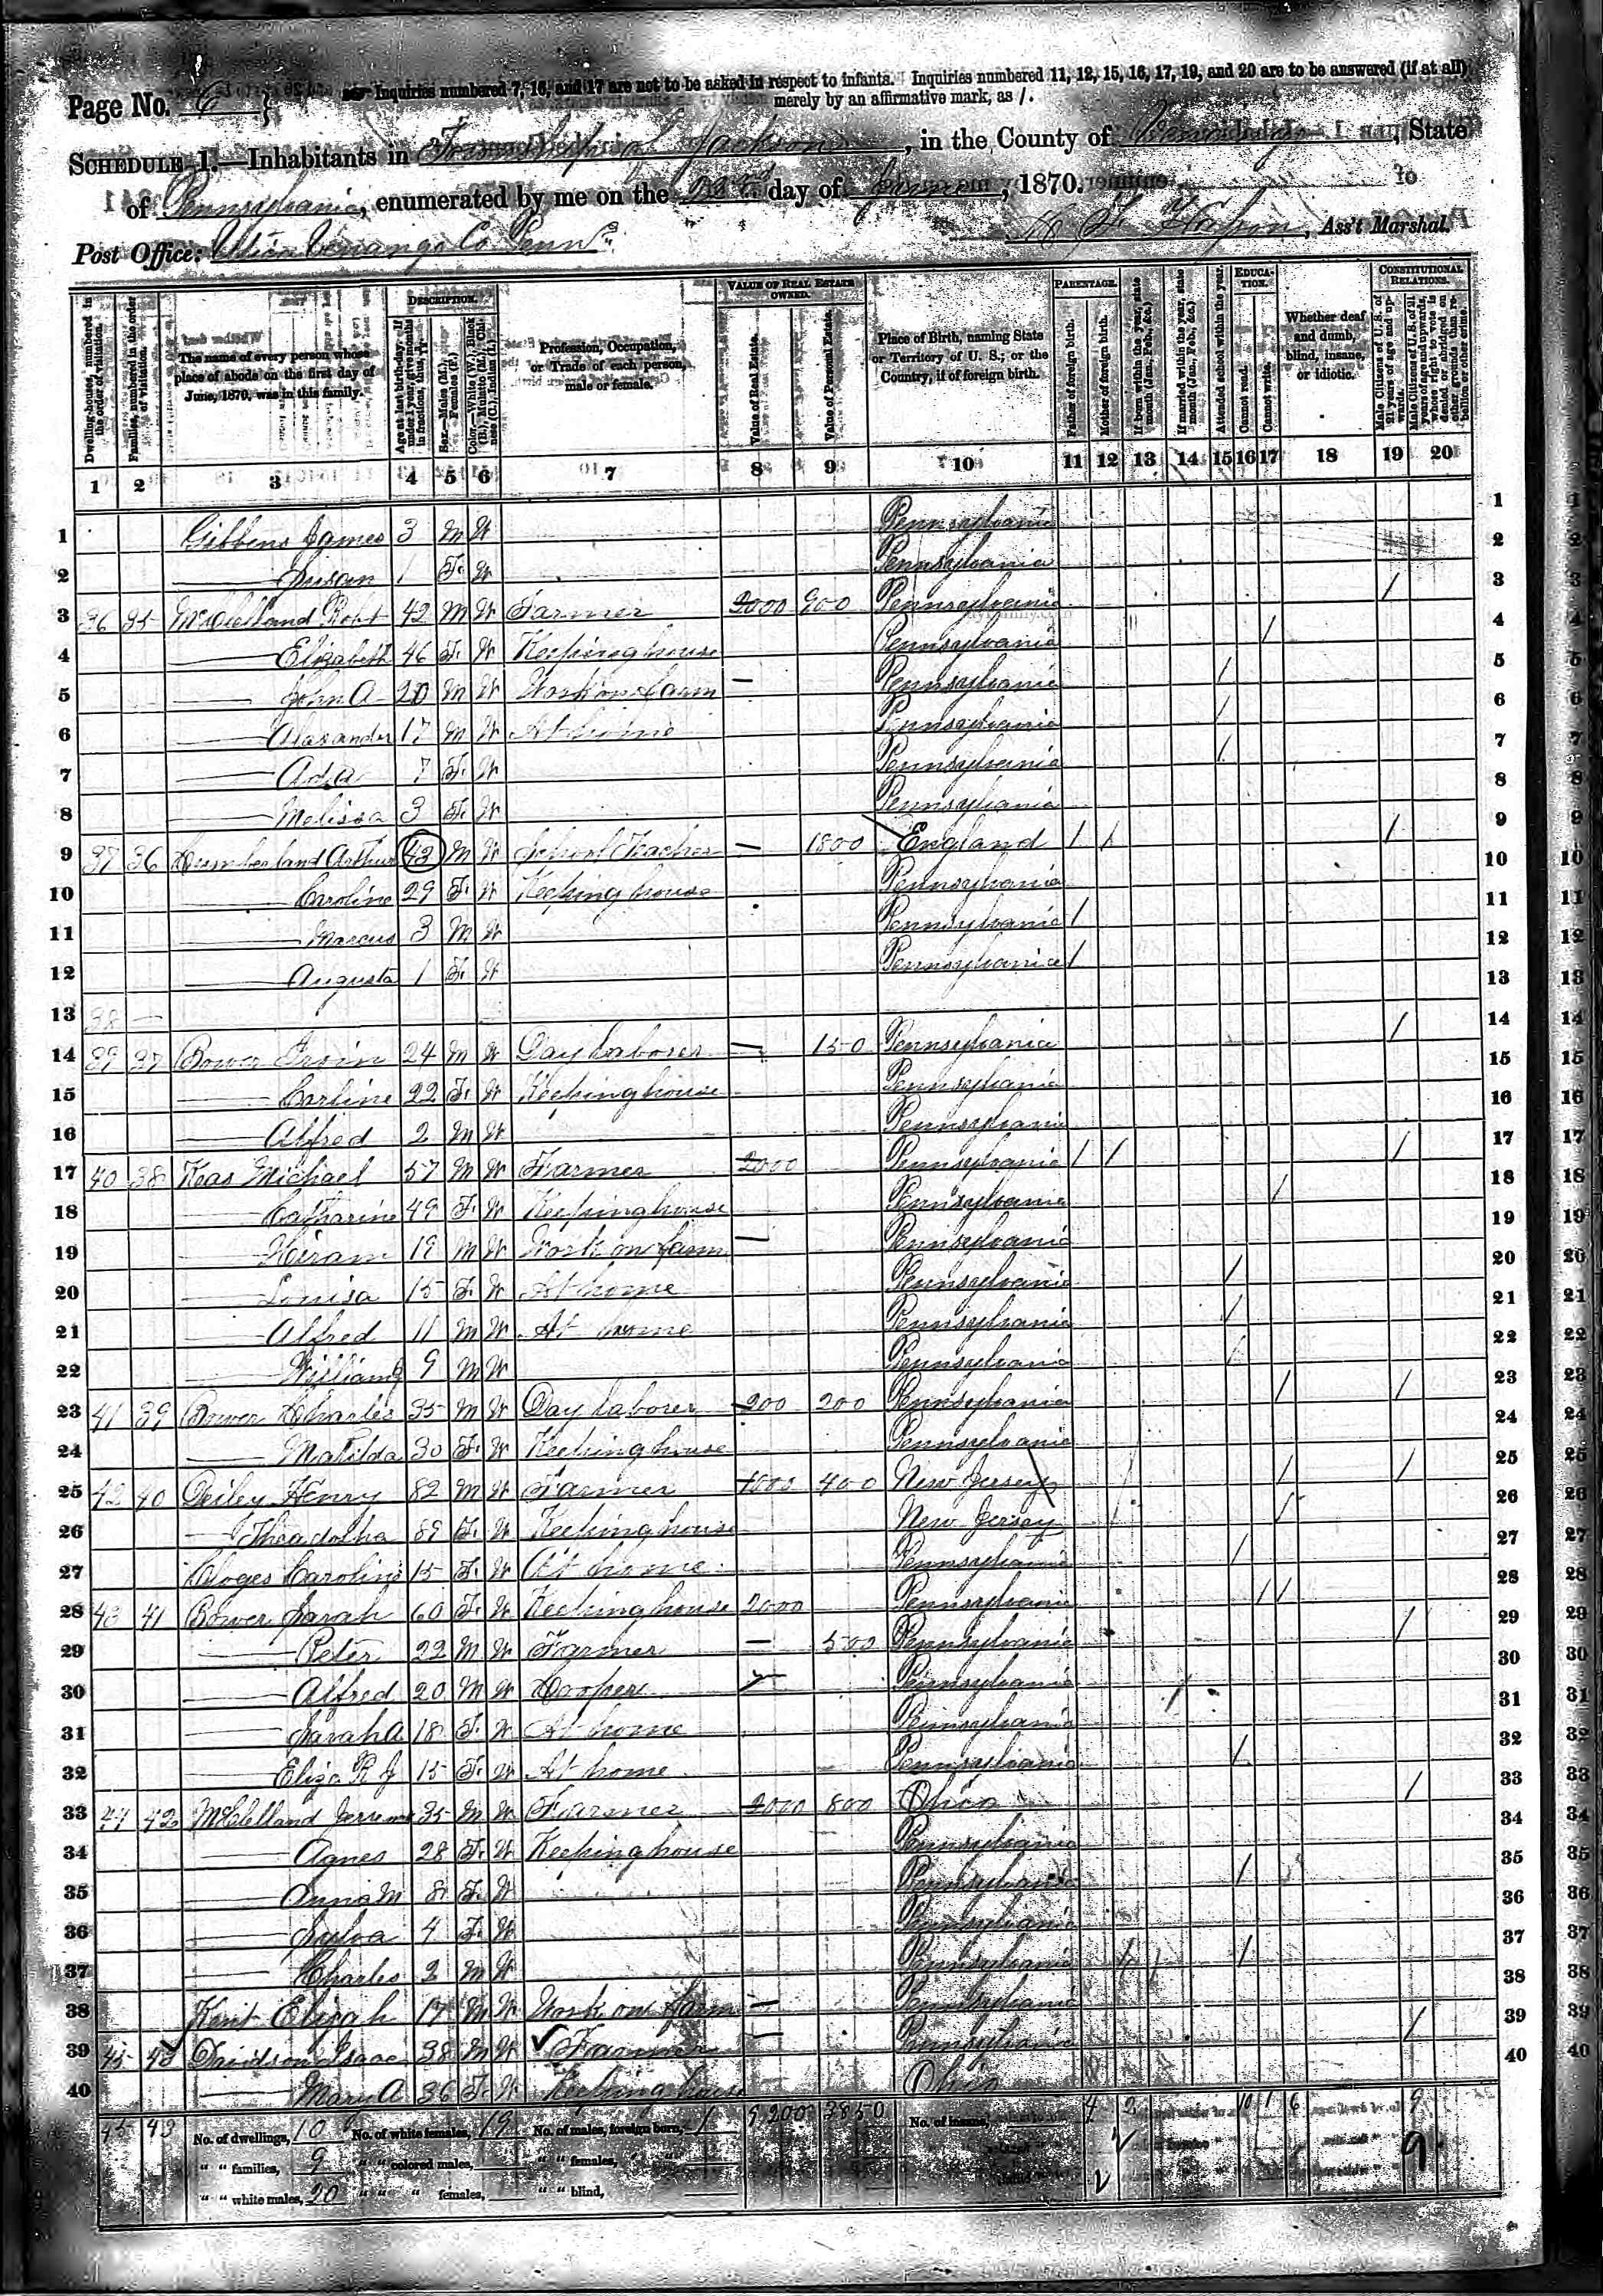 Page No. 6
Inquiries numbered 7, 16, and 17 are not to be asked in respect to infants. Inquiries numbered 11, 12, 15, 16, 17, 19, and 20 are to be answered (if at all)
merely by an affirmative mark, as /.
SCHEDULE 1.—Inhabitants in Township of Jackson, in the County of Venango, State
of Pennsylvania, enumerated by me on the 22nd day of June, 1870.
Post Office: Utica Venango Co Penn, Ass't Marshal.
Dwelling-houses, numbered in the order of visitation.
Families, numbered in the order of visitation.
The name of every person whose place of abode on the first day of June, 1870, was in this family.
DESCRIPTION.
Age at last birth-day. If under 1 year, give months in fractions, thus
Sex.—Males (M.), Females (F.)
Color.—White (W.), Black (B.), Mulatto (M.), Chinese (C.), Indian (I.)
Profession, Occupation, or Trade of each person, male or female.
VALUE OF REAL ESTATE OWNED.
Value of Real Estate.
Value of Personal Estate.
Place of Birth, naming State or Territory of U. S.; or the Country, if of foreign birth.
PARENTAGE.
Father of foreign birth.
Mother of foreign birth.
If born within the year, state month (Jan. Feb., &c.)
If married within the year, state month (Jan. Feb., &c.)
EDUCATION.
Attended school within the year.
Cannot read.
Cannot write.
Whether deaf and dumb, blind, insane, or idiotic.
CONSTITUTIONAL RELATIONS.
Male Citizens of U. S. of 21 years of age and upwards.
Male Citizens of U. S. of 21 years of age and upwards, whose right to vote is denied or abridged on other grounds than rebellion or other crime.
1 2 3 4 5 6 7 8 9 10 11 12 13 14 15 16 17 18 19 20
1 Gibbens James 3 M W Pennsylvania 1
2 — Susan 1 F. W Pennsylvania 2
3 36 35 McClelland Robt 42 M W Farmer 2000 900 Pennsylvania / 3
4 — Elizabeth 46 F. W Keeping house Pennsylvania / 4
5 — John A 20 M W Work on farm — Pennsylvania / 5
6 — Alaxander 17 M W At home Pennsylvania / 6
7 — Ada 7 F. W Pennsylvania / 7
8 — Melissa 3 F. W Pennsylvania 8
9 37 36 Arthur 43 M W School Teacher — 1800 England / / / 9
10 — Caroline 29 F. W Keeping house Pennsylvania 10
11 — Marcus 3 M W Pennsylvania / 11
12 — Augusta 1 F. W Pennsylvania / 12
13 38 — 13
14 39 37 Bower Irvin 24 M W Day laborer — 150 Pennsylvania / 14
15 — Carline 22 F. W Keeping house Pennsylvania 15
16 — Alfred 2 M W Pennsylvania 16
17 40 38 Keas Michael 57 M W Farmer 2000 Pennsylvania / / / 17
18 — Catharine 49 F. W Keeping house Pennsylvania / 18
19 — Hiram 19 M W Work on farm — Pennsylvania 19
20 — Louisa 15 F. W At home Pennsylvania / 20
21 — Alfred 11 M W At home Pennsylvania / 21
22 — William 9 M W Pennsylvania / 22
23 41 39 Bower Charles 35 M W Day laborer 200 200 Pennsylvania / / 23
24 — Matilda 30 F. W Keeping house Pennsylvania 24
25 42 40 Deiley Henry 82 M W Farmer 1000 400 New Jersey / / 25
26 — 89 F. W Keeping house New Jersey / 26
27 Caroline 15 F. W At home Pennsylvania / 27
28 43 41 Bower Sarah 60 F. W Keeping house 2000 Pennsylvania / / 28
29 — Peter 22 M W Farmer — 500 Pennsylvania / 29
30 — Alfred 20 M W Cooper — Pennsylvania 30
31 — Sarah A 18 F. W At home Pennsylvania 31
32 — Eliza R J 15 F. W At home Pennsylvania / 32
33 44 42 McClelland 35 M W Farmer 2000 800 Ohio / 33
34 — Agnes 28 F. W Keeping house Pennsylvania 34
35 — Anna M 8 F. W Pennsylvania / 35
36 — Sylva 4 F. W Pennsylvania 36
37 — Charles 2 M W Pennsylvania 37
38 Elizah 17 M W Work on farm — Pennsylvania 38
39 45 43 Davidson Isaac 38 M W Farmer — Pennsylvania / 39
40 — Mary A 36 F. W Keeping house Ohio 40
45 43 No. of dwellings, 10 No. of white females, 19 No. of males, foreign born, 1 9200 3850 No. of insane, 4 2 10 1 6 9
" " families, 9 " " colored males, — " " females, " " — 9
" " white males, 20 " " " females, — " " blind, —